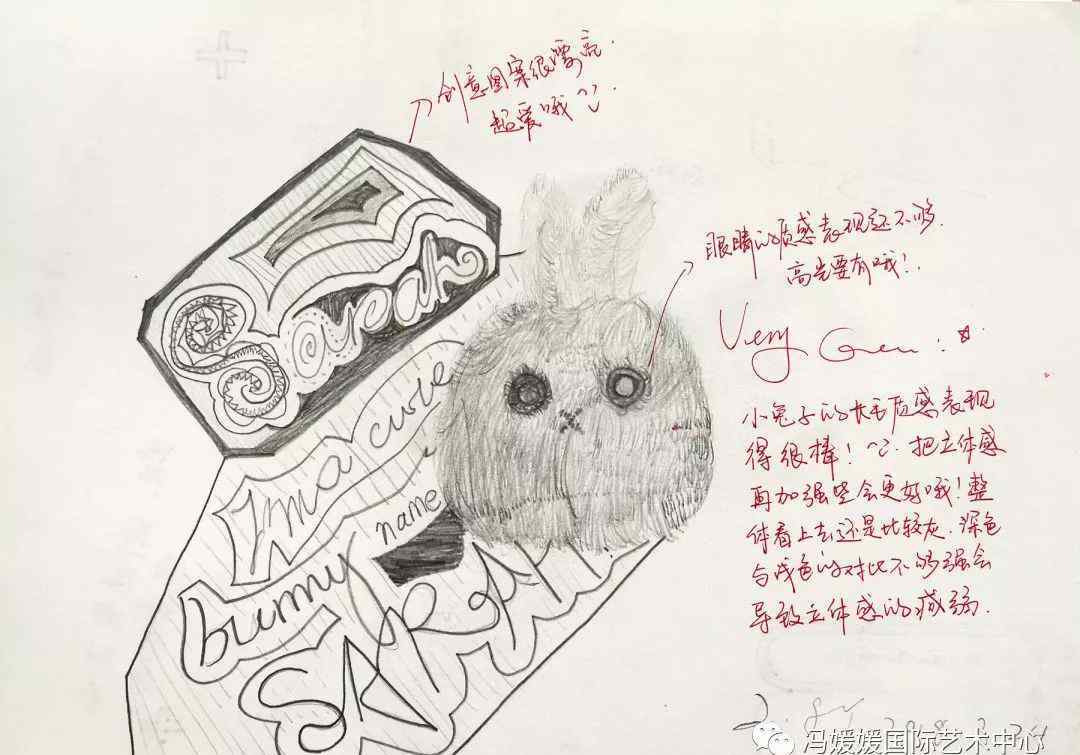 创意图案很漂亮.
超爱哦
眼睛的质感表现还不够.
高光要有哦!
Very
小兔子的长毛质感表现
得很棒! 把立体感
再加强些会更好哦! 整
体看上去还是比较灰. 深色
与浅色的对比不够强会
导致立体感的减弱.
yeah
I'm a cute
bunny
name
冯媛媛国际艺术中心